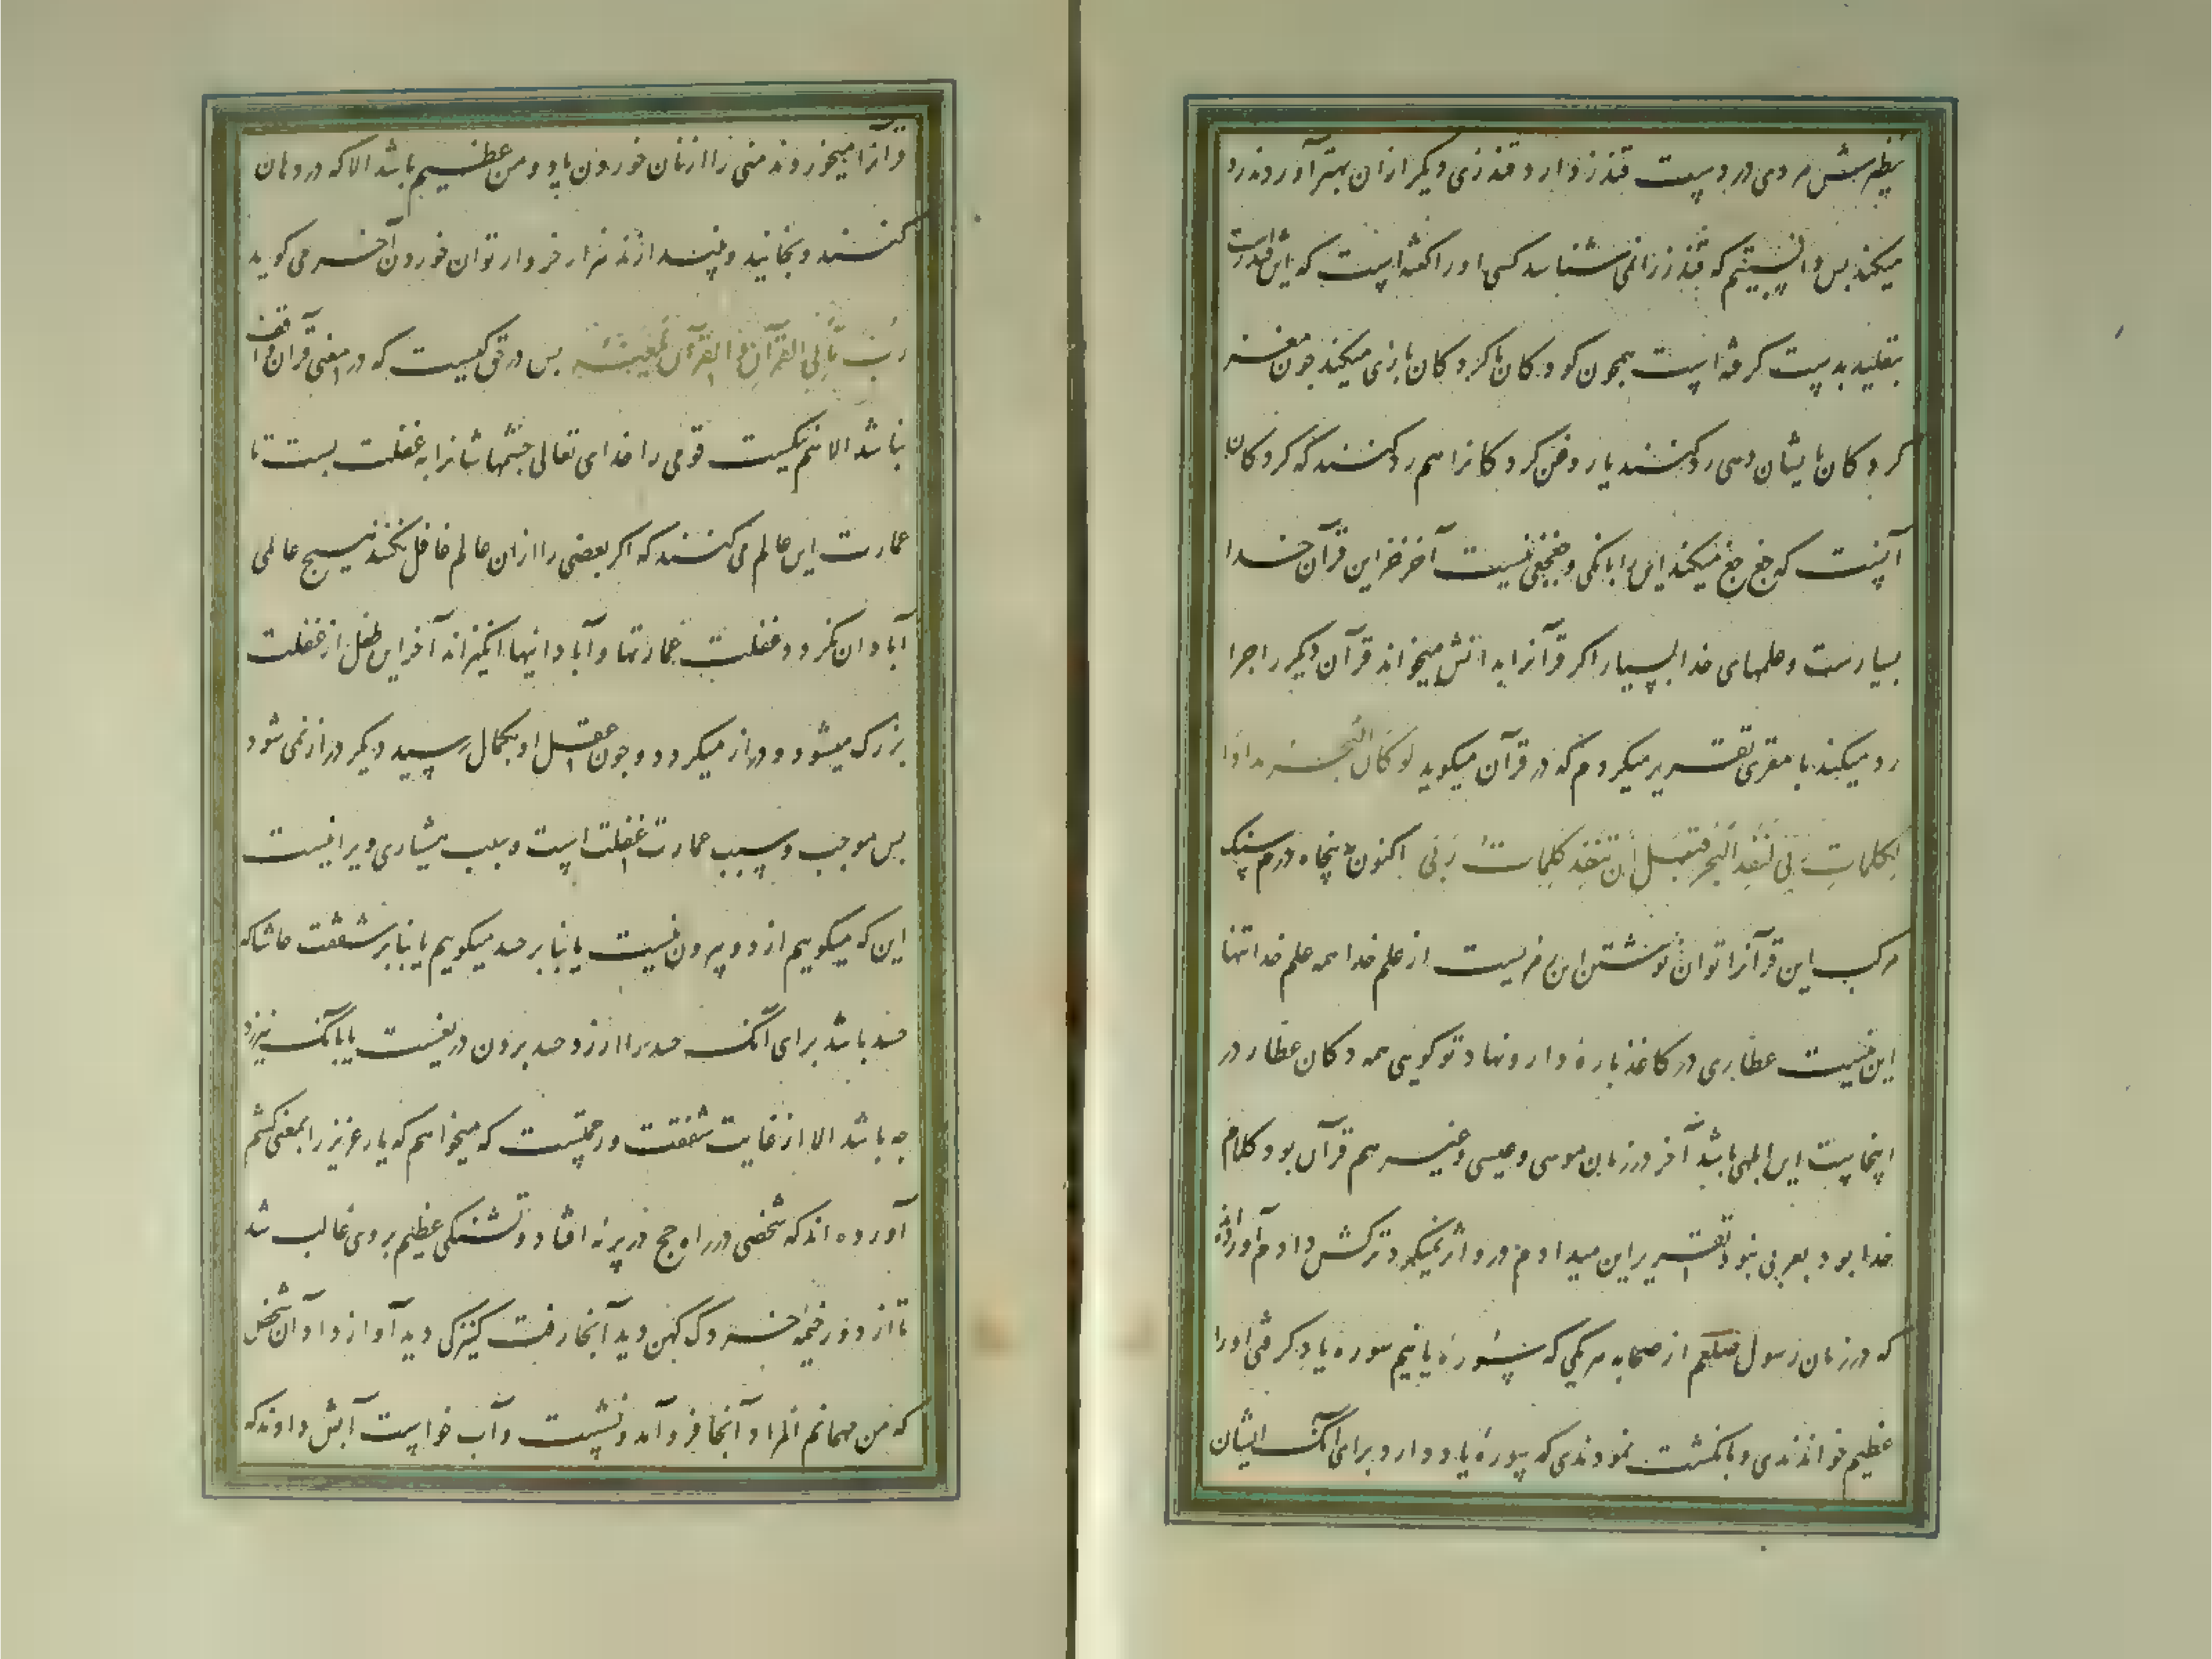 نظیرش مردی در دست قندز دارد قندزی دیگر ازان بهتر آوردند رد
میکند پس دانستیم که قندز را نمی شناسد کسی او را گفته است که این قندزست
بتقلید بدست گرفته است همچون کودکان با گردکان بازی میکند چون مغز
گردکان بایشان دهی رد کنند یا روغن گردکانرا هم رد کنند که گردکان
آنست که جغ جغ میکند این را بانگی و جغجغی نیست آخر خزاین قرآن خدا
بسیارست و علمهای خدا بسیار اگر قرآنرا بدانش میخواند قرآن دیگر را چرا
رد میکند با مقری تقریر میکردم که در قرآن میگوید لو کان البحر مدادا
لکلمات ربی لنفد البحر قبل ان تنفد کلمات ربی اکنون به پنجاه درم سنگ
مرکب این قرآنرا توان نوشتن این رمزیست از علم خدا همه علم خدا تنها
این نیست عطاری در کاغذ پاره دارو نهاد تو گویی همه دکان عطار در
اینجاست این ابلهی باشد آخر در زمان موسی و عیسی و غیره هم قرآن بود کلام
خدا بود بعربی نبود تقریر این میدادم در و اثر نمیکرد ترکش دادم آورده‌اند
که در زمان رسول صلعم از صحابه هر یکی که سوره یا نیم سوره یاد گرفتی او را
عظیم خواندندی و بانگشت نمودندی که سوره یاد دارد برای آنک ایشان
قرآنرا میخوردند منی را از نان خوردن یا دو من عظیم باشد الا که در دهان
کنند و بخایند و بیندازند هزار خروار توان خوردن آخر می گوید
رب تالی القرآن و القرآن یلعنه پس در حق کسیست که در معنی قرآن واقف
نباشد الا هم نیکست قومی را خدای تعالی چشمهاشانرا به غفلت بست تا
عمارت این عالم می کنند که اگر بعضی را ازان عالم غافل نکنند هیچ عالمی
آبادان نگردد غفلت عمارتها و آبادانیها انگیزاند آخر این طفل از غفلت
بزرگ میشود و دراز میگردد و چون عقل او بکمال رسید دیگر دراز نمی شود
پس موجب و سبب عمارت غفلت است و سبب هشیاری ویرانیست
این که میگویم از دو بیرون نیست یا بنابر حسد میگویم یا بنابر شفقت حاشا که
حسد باشد برای آنک حسد را ارزد حسد بردن دریغست یا بآنک نیرزد
چه باشد الا از غایت شفقت و رحمتست که میخواهم که یار عزیز را بمعنی کشم
آورده اند که شخصی در راه حج در بریه افتاد و تشنگی عظیم بر وی غالب شد
تا از دور خیمه خرد ک کهن دید آنجا رفت کنیزکی دید آواز داد آن شخص
که من مهمانم المراد آنجا فرو آمد و نشست و آب خواست آبش دادند که